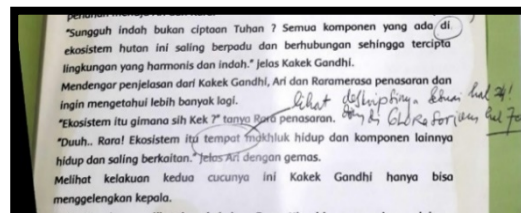 "Sungguh indah bukan ciptaan Tuhan ? Semua komponen yang ada di
ekosistem hutan ini saling berpadu dan berhubungan sehingga tercipta
lingkungan yang harmonis dan indah." jelas Kakek Gandhi.
Mendengar penjelasan dari Kakek Gandhi, Ari dan Raramerasa penasaran dan
ingin mengetahui lebih banyak lagi.
lihat
hal 24!
"Ekosistem itu gimana sih Kek ?" tanya Rara penasaran.
"Duuh.. Rara! Ekosistem itu tempat makhluk hidup dan komponen lainnya
hidup dan saling berkaitan." jelas Ari dengan gemas.
Melihat kelakuan kedua cucunya ini Kakek Gandhi hanya bisa
menggelengkan kepala.